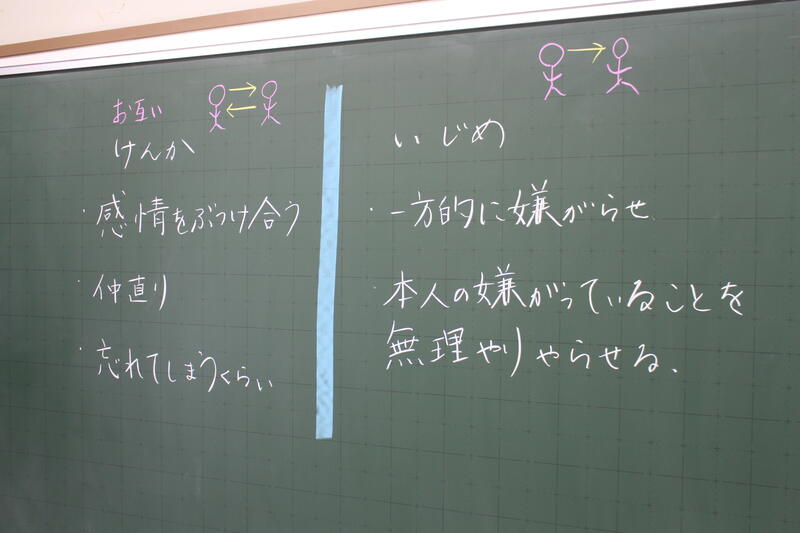 お互い
けんか
・感情をぶつけ合う
・仲直り
・忘れてしまうくらい
いじめ
・一方的に嫌がらせ
・本人の嫌がっていることを
無理やりやらせる、